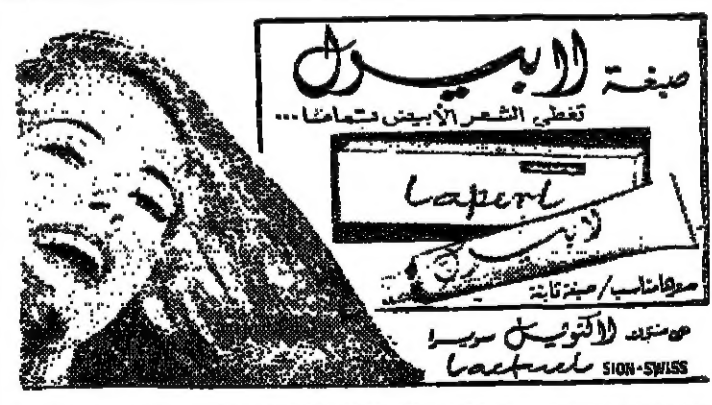 صبغة لابيرل
تغطي الشعر الأبيض تماماً...
Laperl
لابيرل
سعرها مناسب / صبغة ثابتة
من منتجات لاكتوئيل سويسرا
Lactuel SION-SWISS